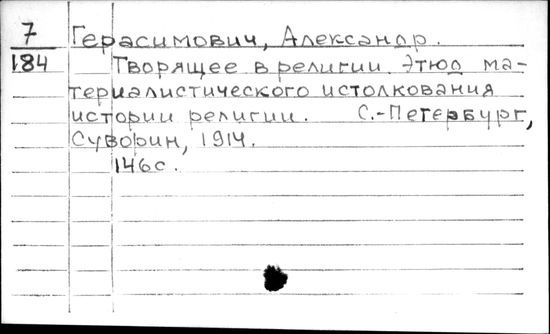 7 Герасимович, Александр.
184 Творящее в религии. Этюд ма-
териалистического истолкования
истории религии. С.-Петербург,
Суворин, 1914.
146с.